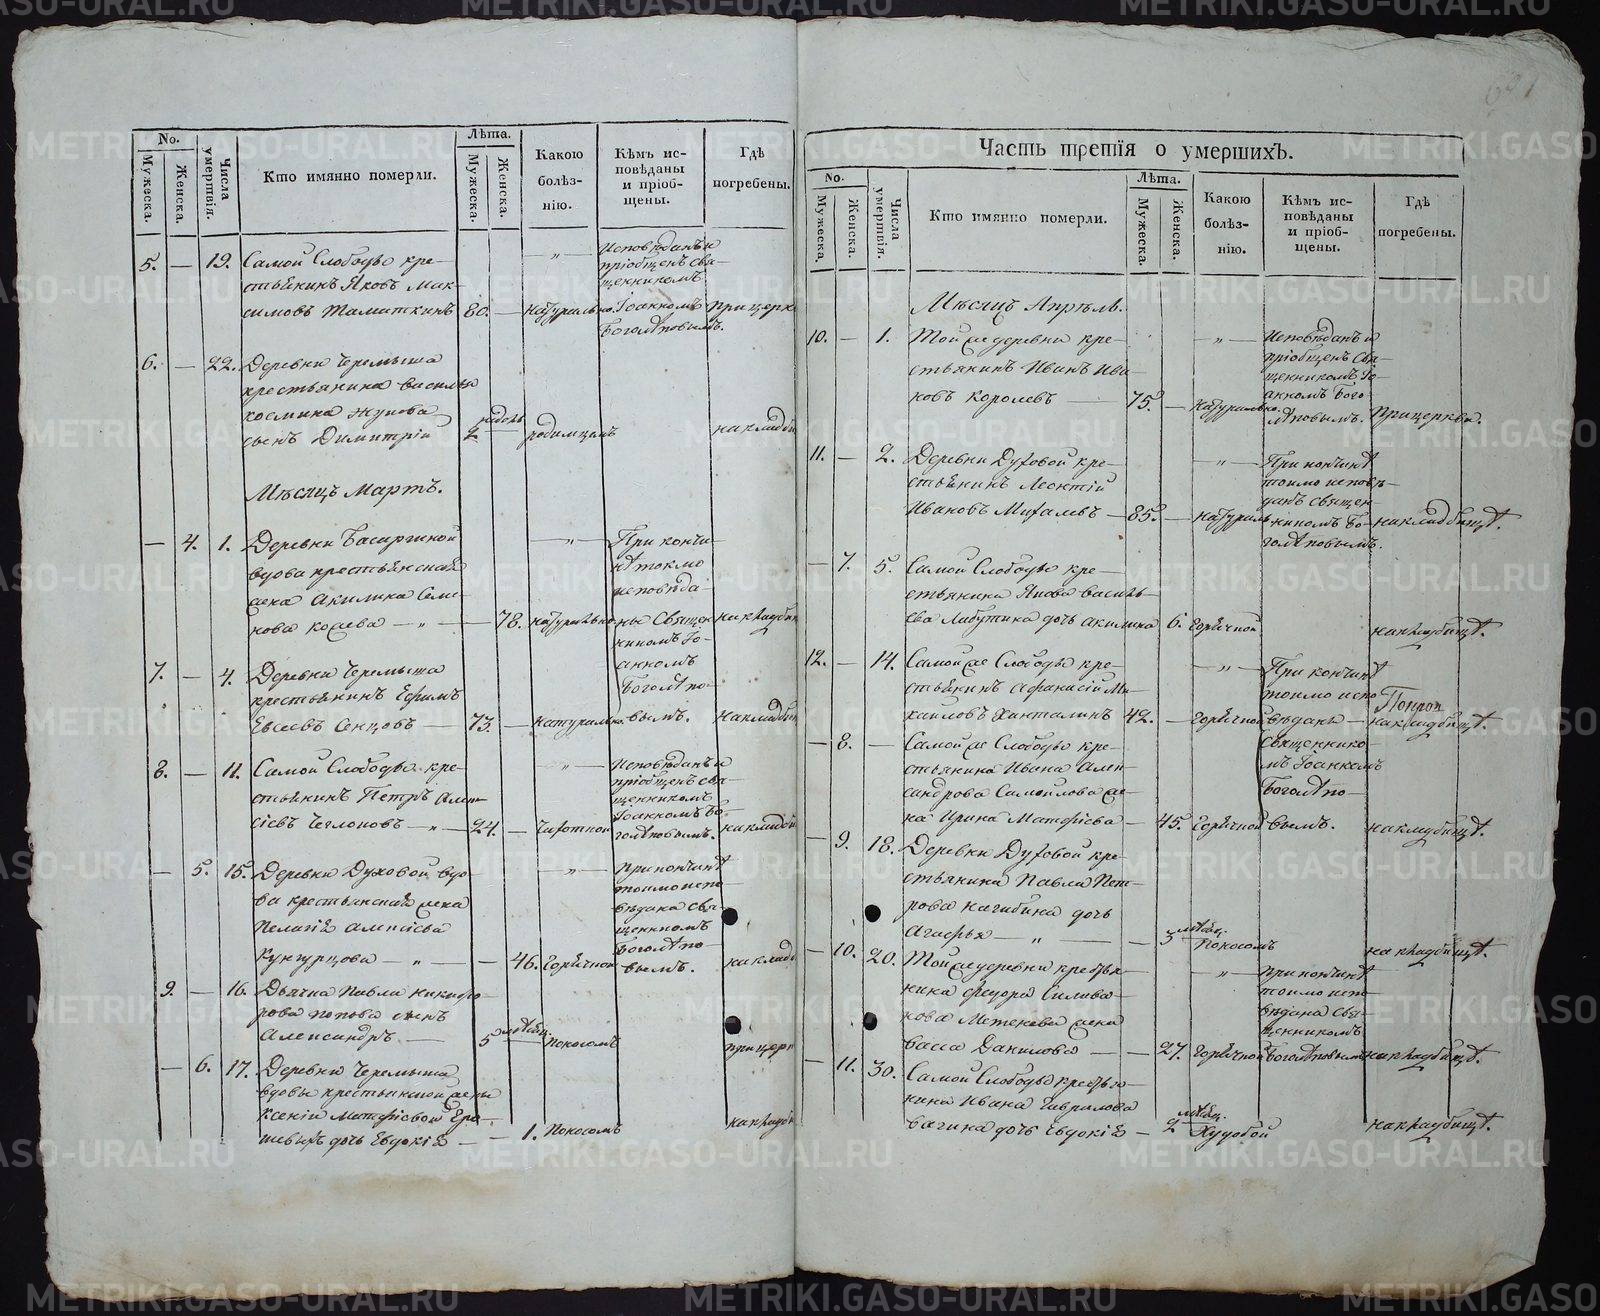 No.
Мужеска.
Женска.
Числа умертвія.
Кто имянно померли.
Лѣта.
Мужеска.
Женска.
Какою болѣз-
нію.
Кѣмъ ис-
повѣданы
и пріоб-
щены.
Гдѣ
погребены.
5. — 19. Самой Слободы кре-
стьянинъ Яковъ Мак-
симовъ 80. — натурально.
Исповѣданъ и
пріобщенъ свя-
щенникомъ
Іоанномъ
Боголѣповымъ.
при церк
6. — 22. Деревни Черемыша
крестьянина Василья
Космина Жукова
сынъ Димитрій 2 недѣль родимцемъ на кладби
Мѣсяцъ Мартъ.
— 4. 1. Деревни Басаргиной
вдова крестьянская
жена Акилина Семе-
нова Косаева — 78. натурально
При кончи-
нѣ токмо
исповѣда-
ны Священ-
никомъ Іо-
анномъ
Боголѣпо-
вымъ.
на кладби
7. — 4. Деревни Черемыша
крестьянинъ Ефимъ
Евсеевъ Сенцовъ — 73. — натурально. на кладби
8. — 11. Самой Слободы кре-
стьянинъ Петръ Алек-
сіевъ Чеглоковъ — 24. — Чахоткой
Исповѣданъ и
пріобщенъ свя-
щенникомъ
Іоанномъ Бо-
голѣповымъ.
на кладби
— 5. 15. Деревни Духовой вдо-
ва крестьянская жена
Пелагія Алексіева
Кунгурцова — 46. Горячкой
При кончинѣ
токмо испо-
вѣдана Свя-
щенникомъ
Боголѣпо-
вымъ.
на кладб
9. — 16. Дьячка Павла Никифо-
рова Попова сынъ
Александръ — 5 мѣсяц. поносомъ при церк
— 6. 17. Деревни Черемыша
вдовы крестьянской жены
Ксеніи Матфіевой Еро-
дочь Евдокія — 1. Поносомъ на кладби
Часть третія о умершихъ.
No.
Мужеска.
Женска.
Числа умертвія.
Кто имянно померли.
Лѣта.
Мужеска.
Женска.
Какою
болѣз-
нію.
Кѣмъ ис-
повѣданы
и пріоб-
щены.
Гдѣ
погребены.
Мѣсяцъ Апрѣль.
10. — 1. Той же деревни кре-
стьянинъ Иванъ Ива-
новъ Королевъ — 75. — натурально.
Исповѣданъ и
пріобщенъ Свя-
щенникомъ Іо-
анномъ Бого-
лѣповымъ.
При церкви.
11. — 2. Деревни Духовой кре-
стьянинъ Леонтій
Ивановъ Михалевъ — 85. — натураль
При кончинѣ
токмо исповѣ-
данъ священ-
никомъ Бо-
голѣповымъ.
на кладбищѣ.
— 7. 5. Самой Слободы кре-
стьянина Якова Василь-
ева Лабутина дочь Акилина 6. Горячкой на кладбищѣ.
12. — 14. Самой же Слободы кре-
стьянинъ Афанасій Ми-
хаиловъ 42. — Горячкой
При кончинѣ
токмо испо-
вѣданы
Священнико-
мъ Іоанномъ
Боголѣпо-
вымъ.
на кладбищѣ.
— 8. — Самой же Слободы кре-
стьянина Ивана Алек-
сандрова Самоилова же-
на Ирина Матфіева — 45. Горячкой на кладбищѣ.
— 9. 18. Деревни Духовой кре-
стьянина Павла Пет-
рова Нагибина дочь
Агафья — 3 мѣсяц. Поносомъ на кладбищѣ.
— 10. 20. Той же деревни крестья-
нина Федора Силива-
нова Метенева жена
Васса Данилова — 27. Горячкой
При кончинѣ
токмо испо-
вѣдана Свя-
щенникомъ
Боголѣповымъ
на кладбищѣ.
— 11. 30. Самой Слободы крестья-
нина Ивана Гаврилова
Вагина дочь Евдокія — 2 мѣсяц. Худобой на кладбищѣ.
METRIKI.GASO-URAL.RU